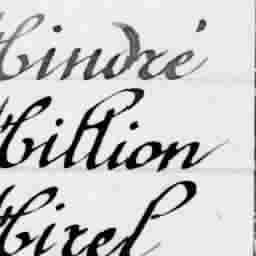 Hindré
Hillion
Hirel